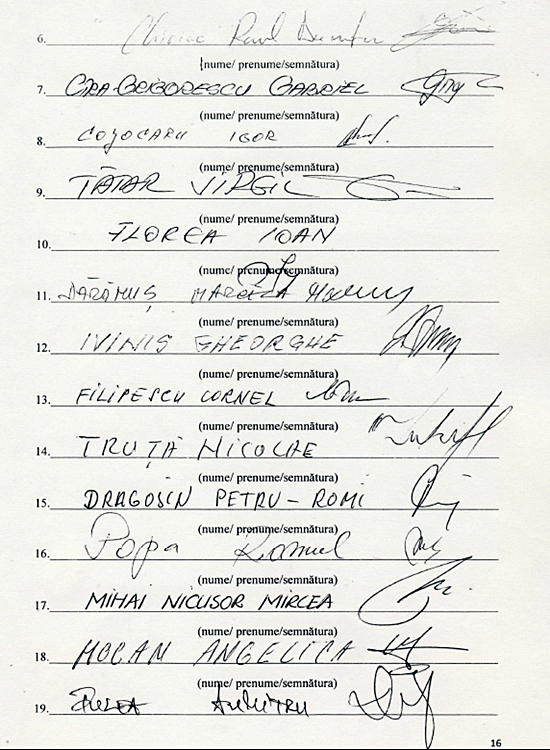 6. Paul Dumitru
(nume/ prenume/semnătura)
7. GÎRA-GRIGORESCU GABRIEL
(nume/ prenume/semnătura)
8. COJOCARU IGOR
(nume/ prenume/semnătura)
9. TĂTAR VIRGIL
(nume/ prenume/semnătura)
10. FLOREA IOAN
(nume/ prenume/semnătura)
11. DĂRĂMUȘ MARCELA
(nume/ prenume/semnătura)
12. IVINIS GHEORGHE
(nume/ prenume/semnătura)
13. FILIPESCU CORNEL
(nume/ prenume/semnătura)
14. TRUȚĂ NICOLAE
(nume/ prenume/semnătura)
15. DRAGOSIN PETRU-ROMI
(nume/ prenume/semnătura)
16. Popa Romul
(nume/ prenume/semnătura)
17. MIHAI NICUSOR MIRCEA
(nume/ prenume/semnătura)
18. MOCAN ANGELICA
(nume/ prenume/semnătura)
19. DUMITRU
16